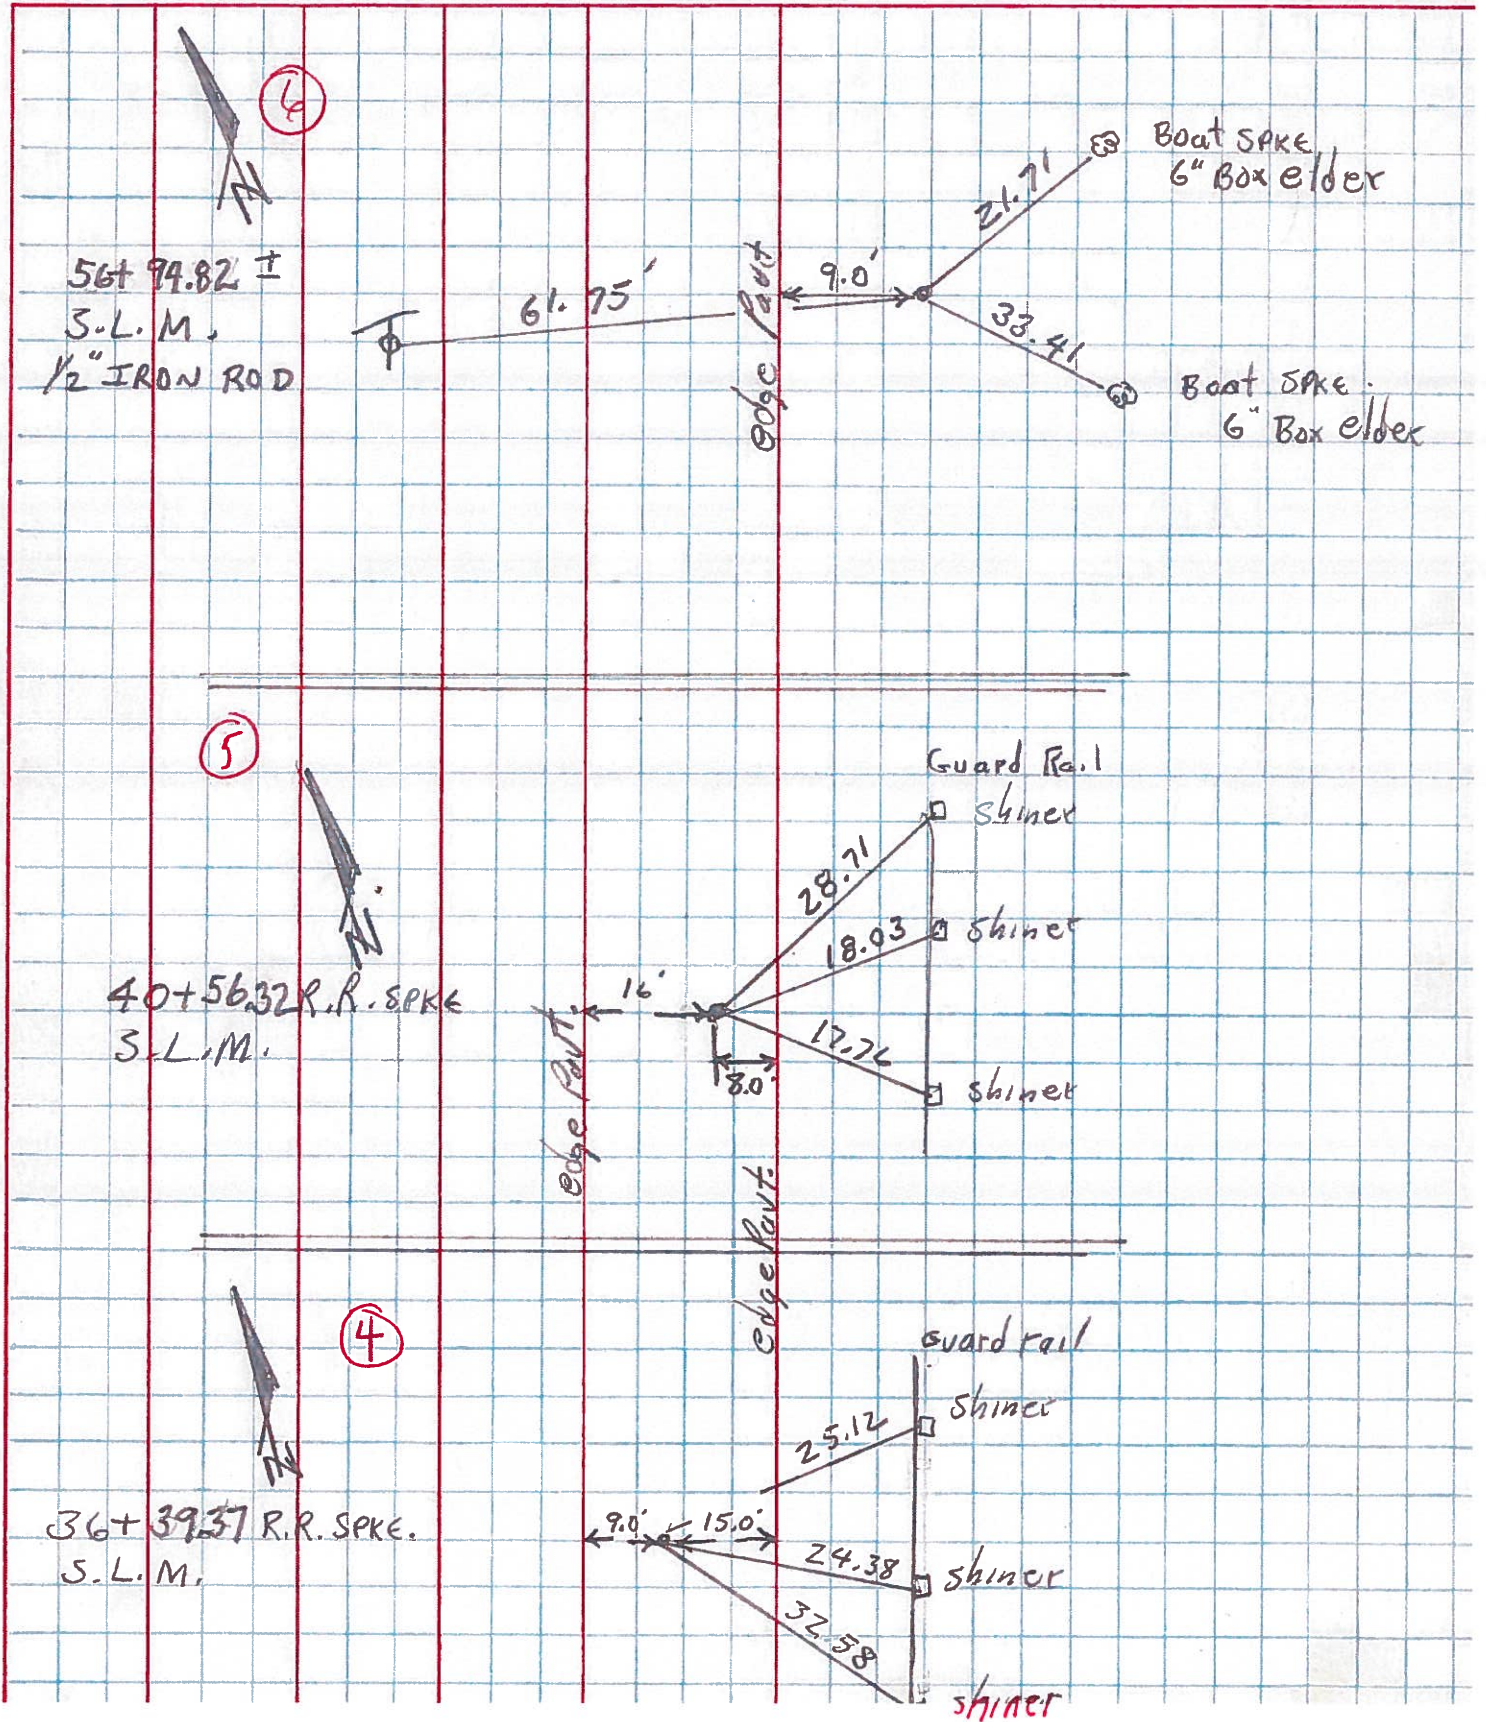 6
N
56+ 94.82 I
S.L.M.
1/2" IRON ROD
61.75'
edge Pavt
9.0'
21.71
Boat SPKE
6" Box elder
33.41
Boat SPKE.
6" Box elder
5
N
40+56.32 R.R. SPKE
S.L.M.
edge Pavt.
16'
8.0'
Guard Rail
28.71
shiner
18.03
shiner
17.76
shiner
edge Pavt.
4
N
36+39.37 R.R. SPKE.
S.L.M.
9.0'
15.0'
Guard rail
25.12
shiner
24.38
shiner
32.58
shiner